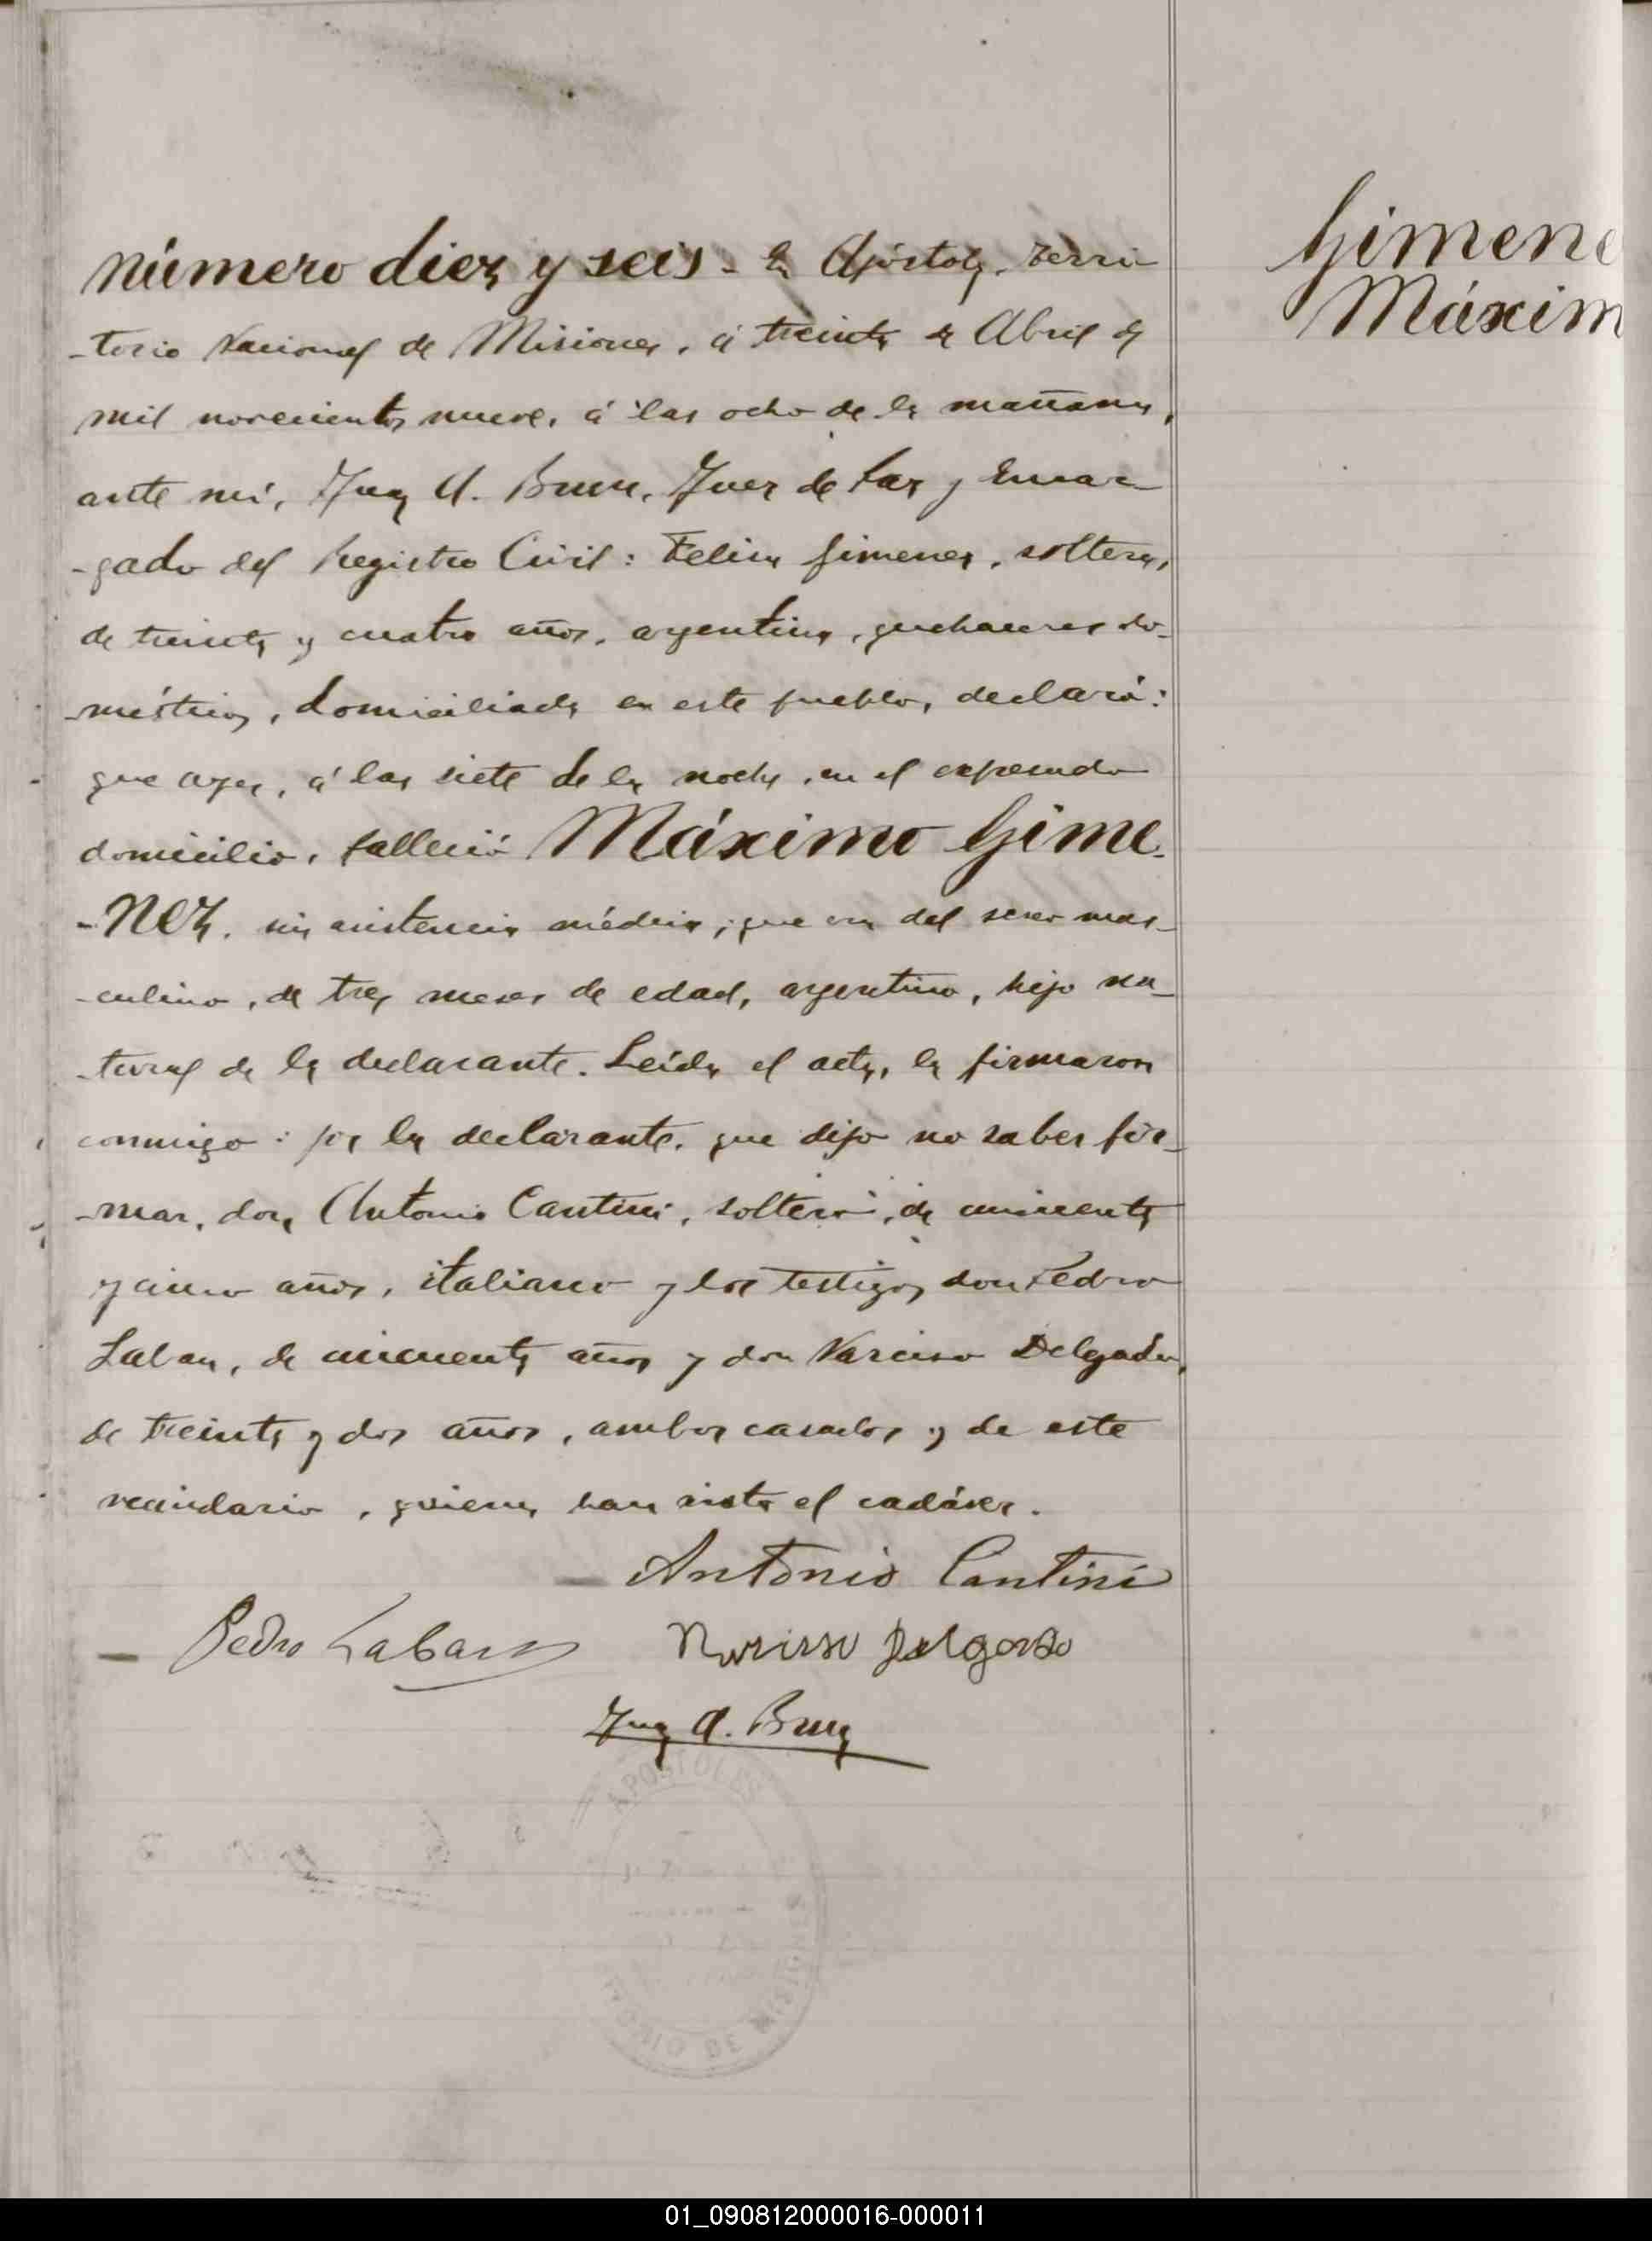 Número diez y seis - En Apóstoles, Terri-
-torio Nacional de Misiones, á treinta de Abril de
mil novecientos nueve, á las ocho de la mañana,
ante mí, Juan A. Juez de Paz y Encar-
-gado del Registro Civil: Felisa Gimenez, soltera,
de treinta y cuatro años, argentina, quehaceres do-
-mésticos, domiciliada en este pueblo, declaró:
que ayer, á las siete de la noche, en el expresado
domicilio, falleció Máximo Gime-
-nez, sin asistencia médica; que era del sexo mas-
-culino, de tres meses de edad, argentino, hijo na-
-tural de la declarante. Leída el acta, la firmaron
conmigo: por la declarante, que dijo no saber fir-
-mar, don Antonio Cantini, soltero, de cincuenta
y cinco años, italiano y los testigos don Pedro
Laban, de cincuenta años y don Narciso Delgado,
de treinta y dos años, ambos casados y de este
vecindario, quienes han visto el cadáver.
Antonio Cantini
Pedro Laban Narciso Delgado
Juan A.
Gimene
Máxim
APOSTOLES
MISIONES
01_090812000016-000011